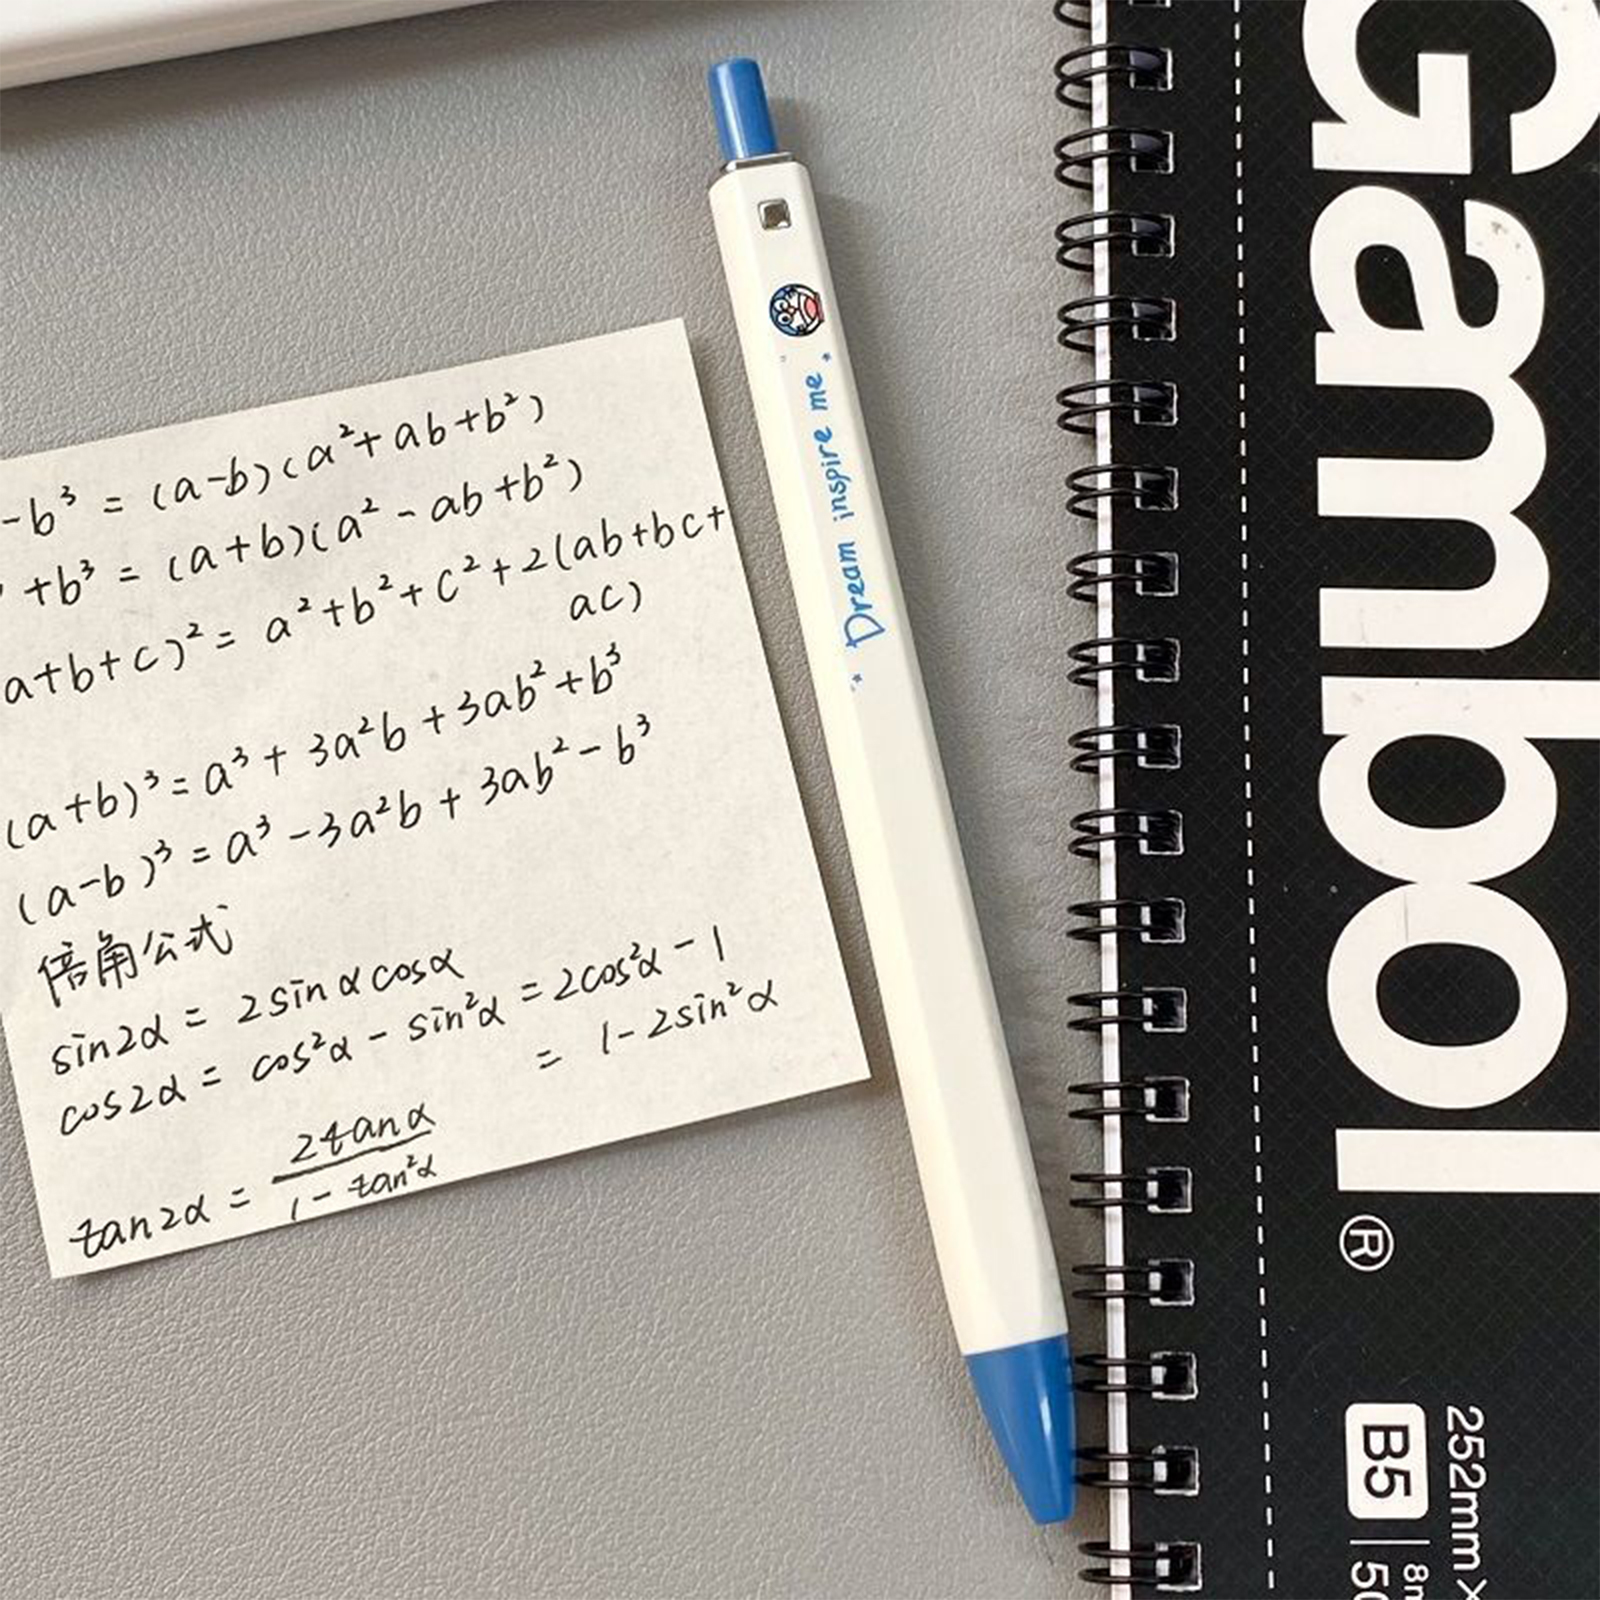 -b³ = (a-b)(a²+ab+b²)
+b³ = (a+b)(a²-ab+b²)
a+b+c)² = a²+b²+c²+2(ab+bc+
ac)
(a+b)³ = a³+3a²b+3ab²+b³
(a-b)³ = a³-3a²b+3ab²-b³
倍角公式
sin2α = 2sinαcosα
cos2α = cos²α - sin²α = 2cos²α-1
= 1-2sin²α
tan2α = 2tanα
1-tan²α
Dream inspire me
Gambol®
B5
252mm×
8m
50